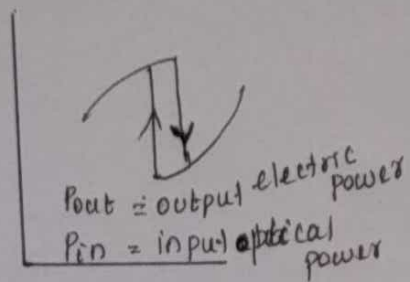 Pout = output electric power
Pin = input optical power